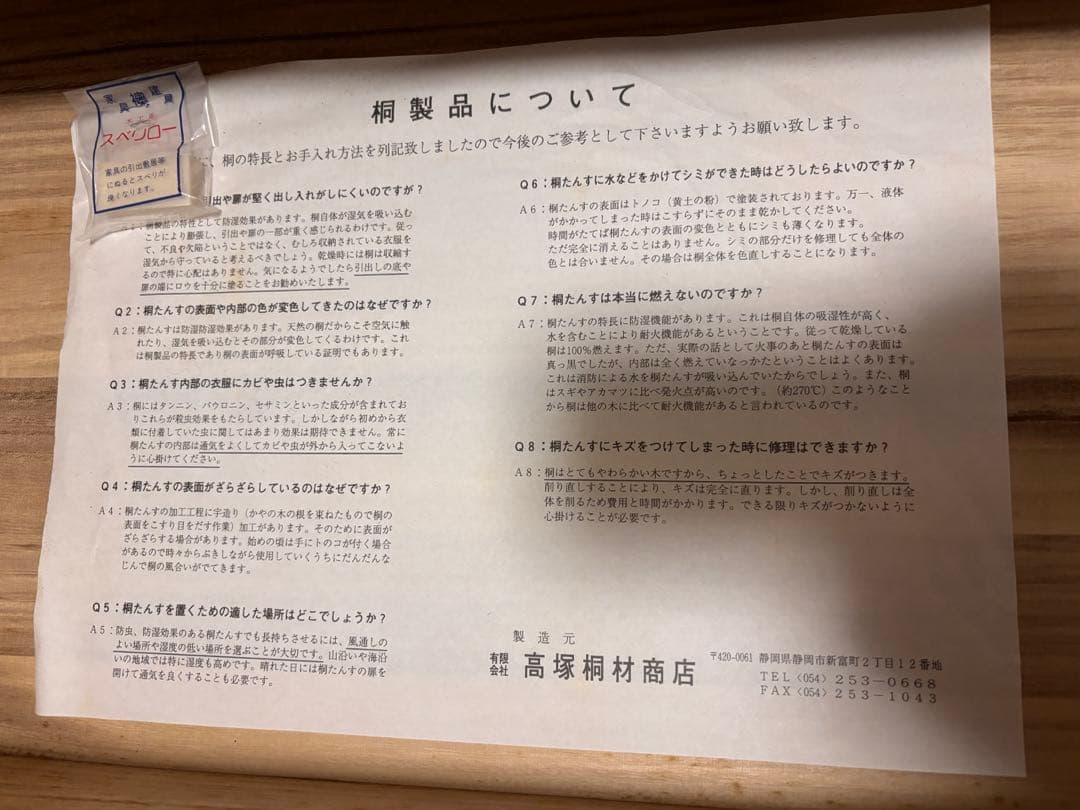 桐製品について
、桐の特長とお手入れ方法を列記致しましたので今後のご参考として下さいますようお願い致します。
家具 建具
スベリロー
家具の引出敷居等
にぬるとスベリが
良くなります。
引出や扉が堅く出し入れがしにくいのですが?
桐製品の特性として防湿効果があります。桐自体が湿気を吸い込む
ことにより膨張し、引出や扉の一部が重く感じられるわけです。従っ
て、不良や欠陥ということではなく、むしろ収納されている衣服を
湿気から守っていると考えるべきでしょう。乾燥時には桐は収縮す
るので特に心配はありません。気になるようでしたら引出しの底や
扉の端にロウを十分に塗ることをお勧めいたします。
Q2:桐たんすの表面や内部の色が変色してきたのはなぜですか?
A2:桐たんすは防湿防湿効果があります。天然の桐だからこそ空気に触
れたり、湿気を吸い込むとその部分が変色してくるわけです。これ
は桐製品の特長であり桐の表面が呼吸している証明でもあります。
Q3:桐たんす内部の衣服にカビや虫はつきませんか?
A3:桐にはタンニン、パウロニン、セサミンといった成分が含まれてお
りこれらが殺虫効果をもたらしています。しかしながら初めから衣
類に付着していた虫に関してはあまり効果は期待できません。常に
桐たんすの内部は通気をよくしてカビや虫が外から入ってこないよ
うに心掛けてください。
Q4:桐たんすの表面がざらざらしているのはなぜですか?
A4:桐たんすの加工工程に宇造り(かやの木の根を束ねたもので桐の
表面をこすり目をだす作業)加工があります。そのために表面が
ざらざらする場合があります。始めの頃は手にトのコが付く場合
があるので時々からぶきしながら使用していくうちにだんだんな
じんで桐の風合いがでてきます。
Q5:桐たんすを置くための適した場所はどこでしょうか?
A5:防虫、防湿効果のある桐たんすでも長持ちさせるには、風通しの
よい場所や湿度の低い場所を選ぶことが大切です。山沿いや海沿
いの地域では特に湿度も高めです。晴れた日には桐たんすの扉を
開けて通気を良くすることも必要です。
Q6:桐たんすに水などをかけてシミができた時はどうしたらよいのですか?
A6:桐たんすの表面はトノコ(黄土の粉)で塗装されております。万一、液体
がかかってしまった時はこすらずにそのまま乾かしてください。
時間がたてば桐たんすの表面の変色とともにシミも薄くなります。
ただ完全に消えることはありません。シミの部分だけを修理しても全体の
色とは合いません。その場合は桐全体を色直しすることになります。
Q7:桐たんすは本当に燃えないのですか?
A7:桐たんすの特長に防湿機能があります。これは桐自体の吸湿性が高く、
水を含むことにより耐火機能があるということです。従って乾燥している
桐は100%燃えます。ただ、実際の話として火事のあと桐たんすの表面は
真っ黒でしたが、内部は全く燃えていなっかたということはよくあります。
これは消防による水を桐たんすが吸い込んでいたからでしょう。また、桐
はスギやアカマツに比べ発火点が高いのです。(約270℃)このようなこと
から桐は他の木に比べて耐火機能があると言われているのです。
Q8:桐たんすにキズをつけてしまった時に修理はできますか?
A8:桐はとてもやわらかい木ですから、ちょっとしたことでキズがつきます。
削り直しすることにより、キズは完全に直ります。しかし、削り直しは全
体を削るため費用と時間がかかります。できる限りキズがつかないように
心掛けることが必要です。
製造元
有限会社 高塚桐材商店
〒420-0061 静岡県静岡市新富町2丁目12番地
TEL〈054〉253-0668
FAX〈054〉253-1043